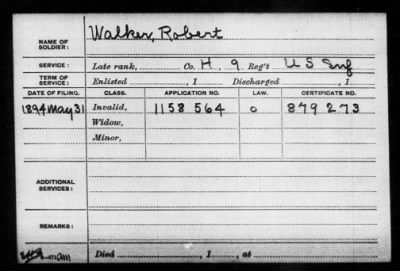 NAME OF SOLDIER: Walker, Robert
SERVICE: Late rank, Co. H, 9 Reg't U S Inf
TERM OF SERVICE: Enlisted , 1 Discharged , 1
DATE OF FILING. CLASS. APPLICATION NO. LAW. CERTIFICATE NO.
1894 May 31 Invalid, 1158 564 0 879 273
Widow,
Minor,
ADDITIONAL SERVICES:
REMARKS:
Died , 1 , at